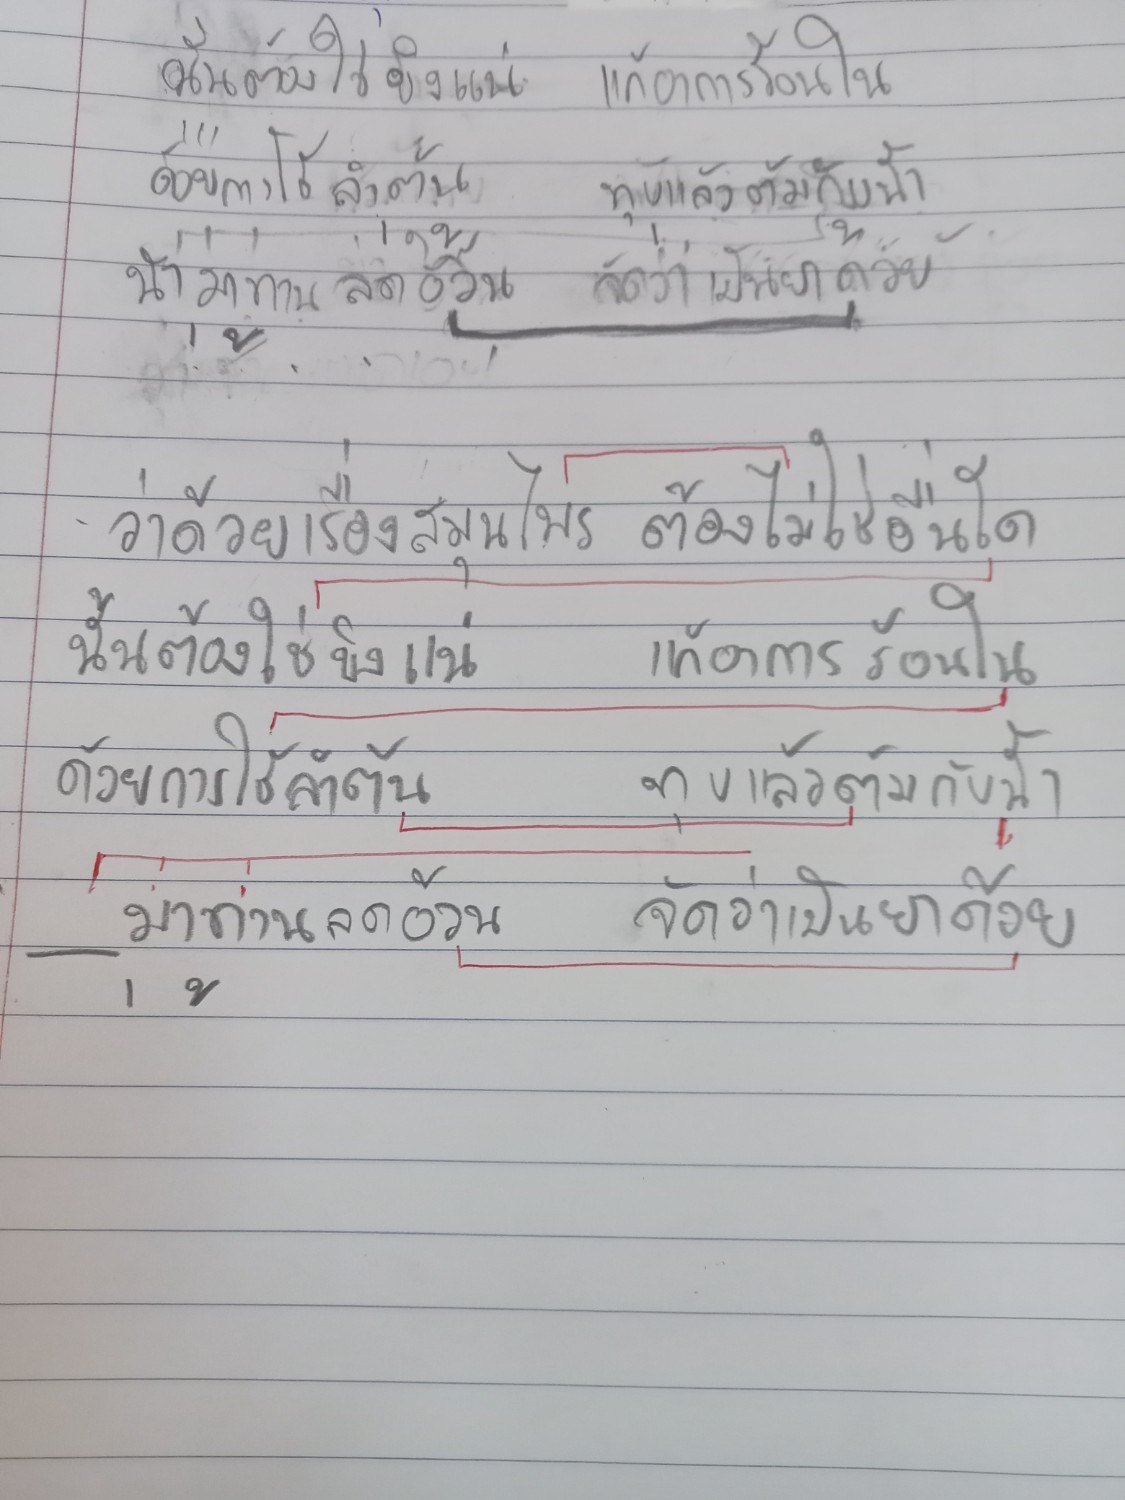 นั่นต้องใช่ขิงแน่ แก้อาการร้อนใน
ด้วยการใช้ลำต้น ทุบแล้วต้มกับน้ำ
น้ำมาทานลดอ้วน จัดว่าเป็นยาด้วย
ว่าด้วยเรื่องสมุนไพร ต้องไม่ใช่อื่นใด
นั้นต้องใช่ขิงแน่ แก้อาการร้อนใน
ด้วยการใช้ลำต้น ทุบแล้วต้มกับน้ำ
ม่าท่านลดอ้วน จัดว่าเป็นยาด้วย